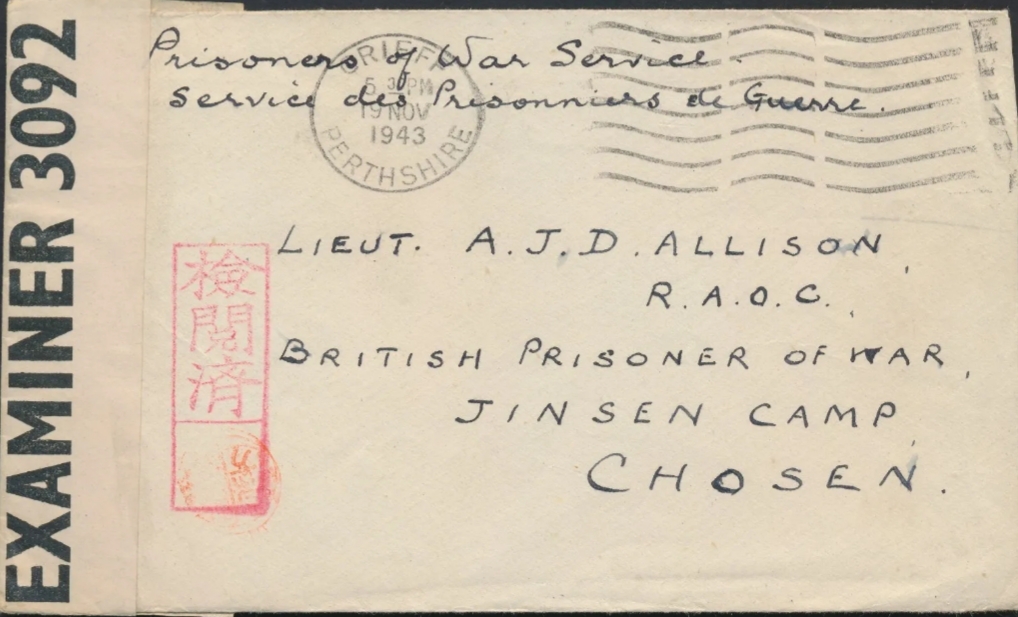 EXAMINER 3092
Prisoners of War Service.
Service des Prisonniers de Guerre.
CRIEFF
5 30 PM
19 NOV
1943
PERTHSHIRE
LIEUT. A.J.D. ALLISON,
R.A.O.C.,
BRITISH PRISONER OF WAR,
JINSEN CAMP,
CHOSEN.
検閲済